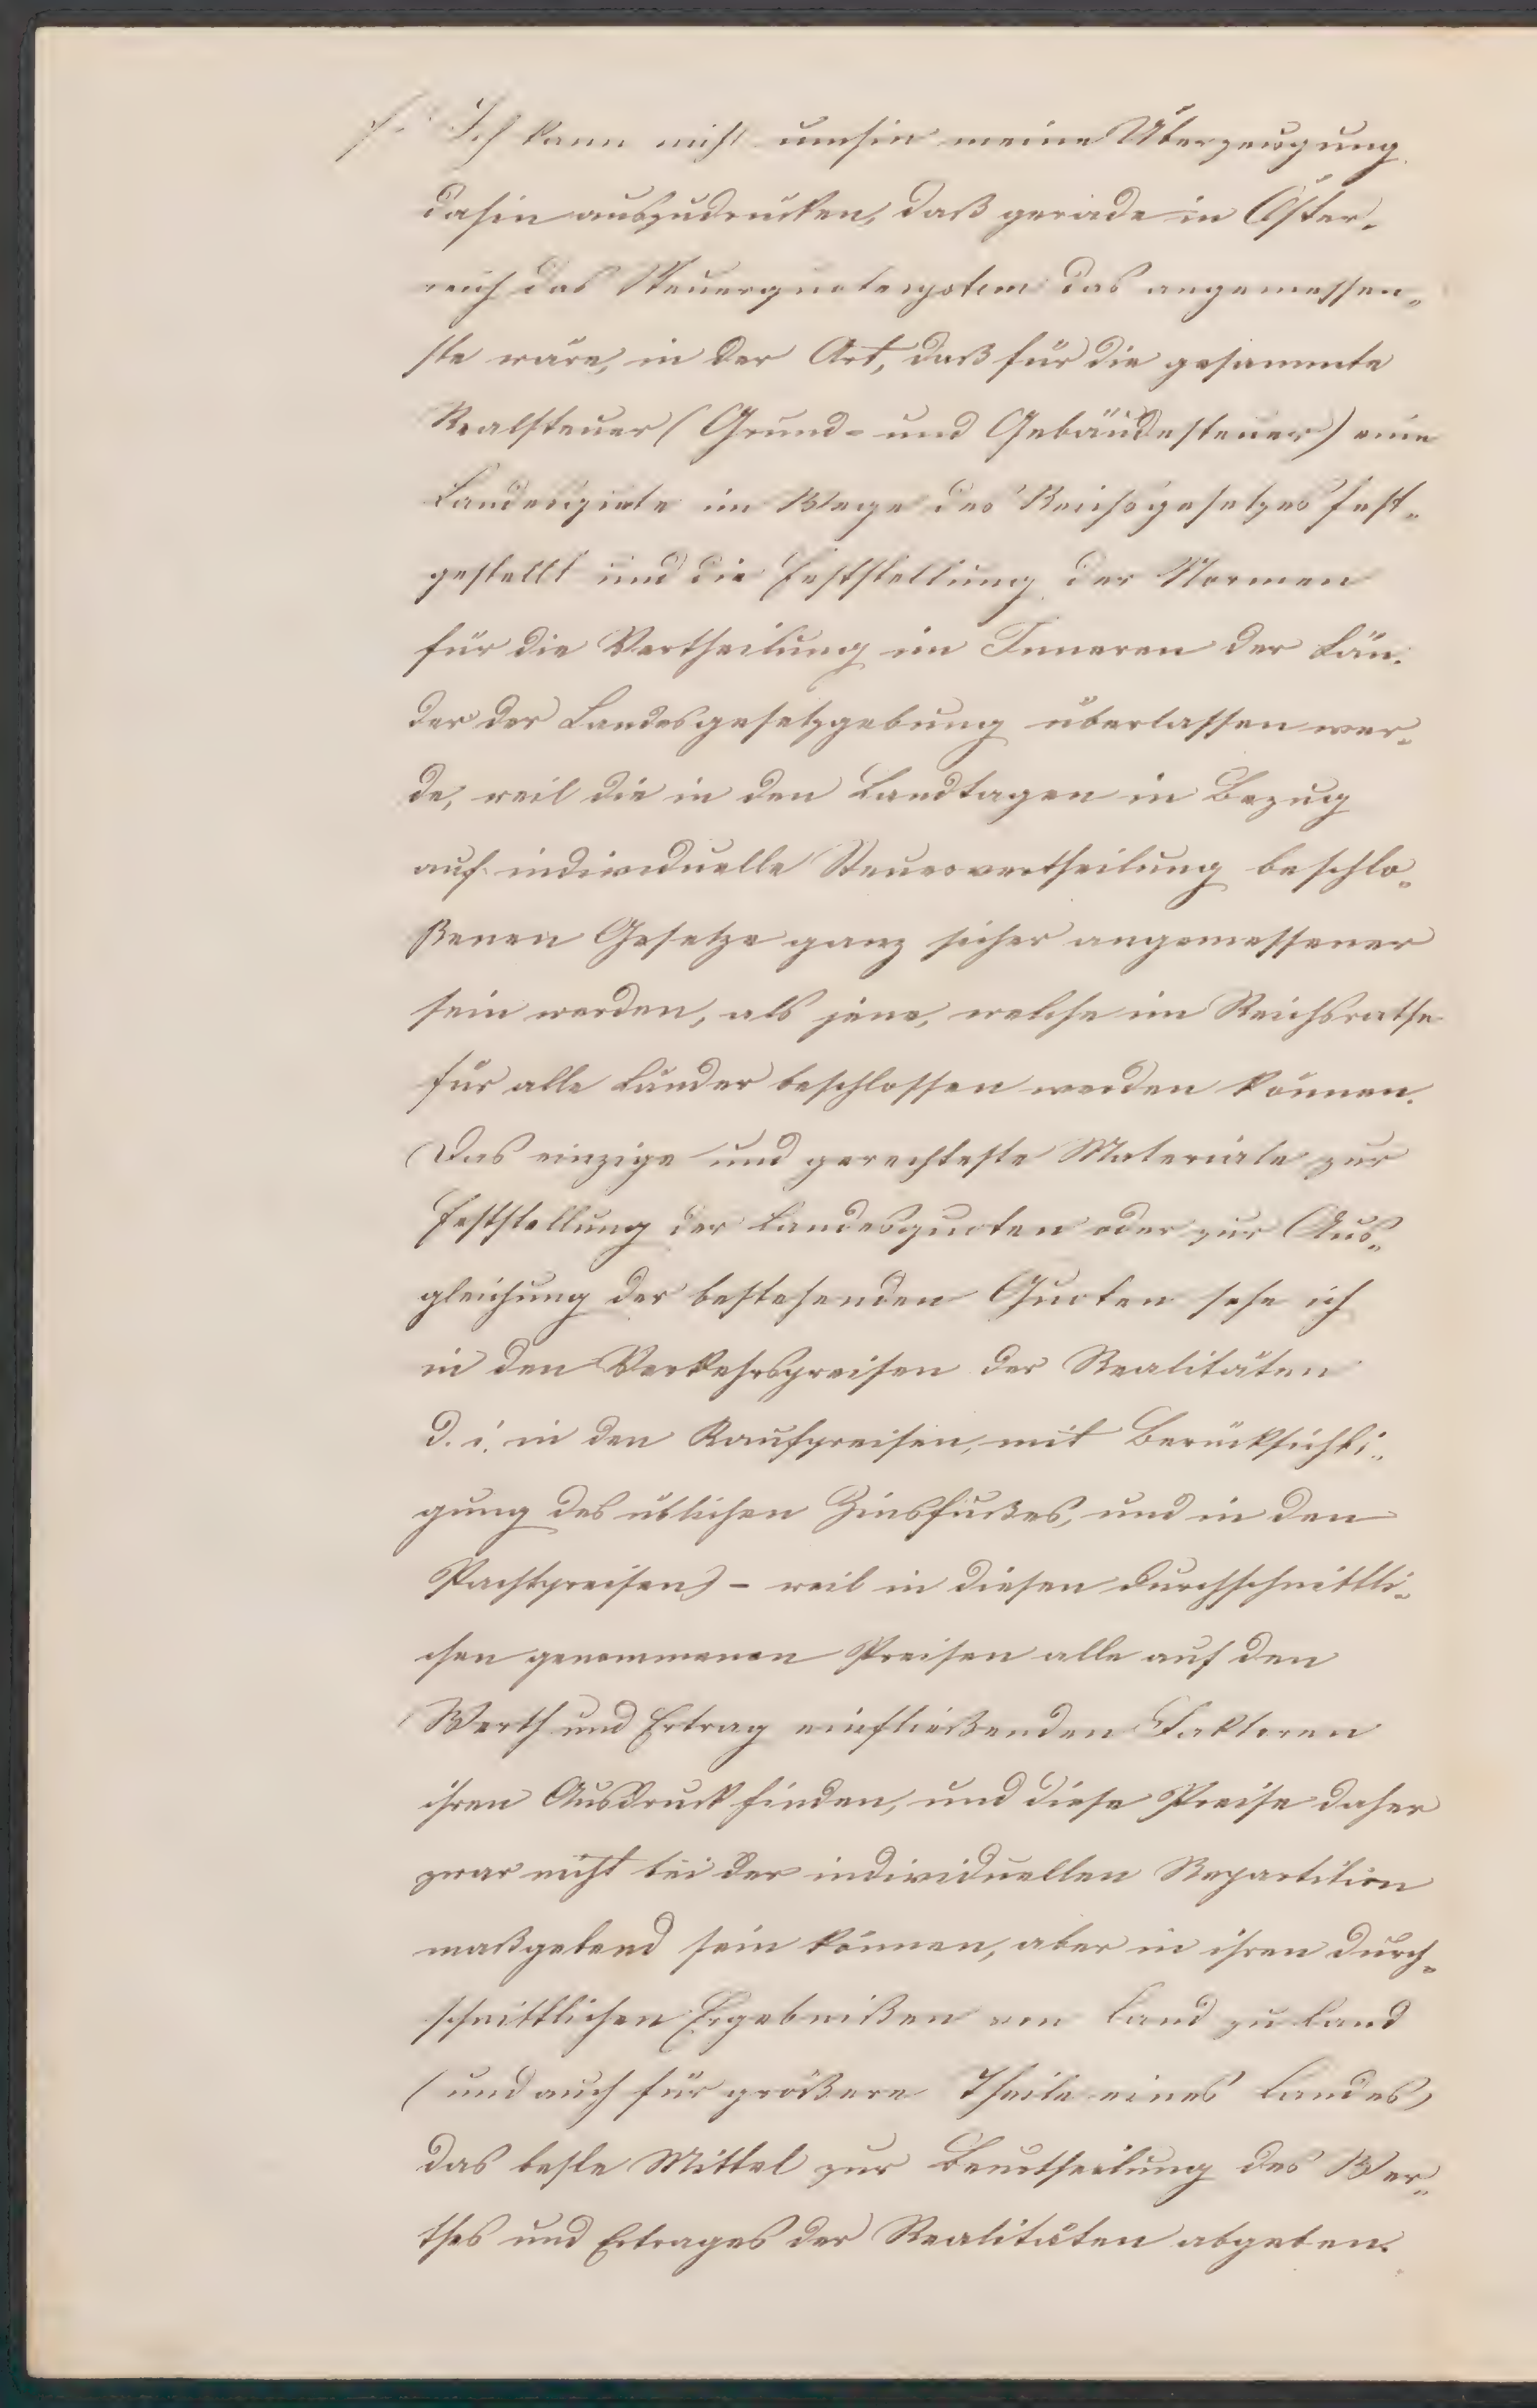 Ich kann nicht umhin meine Überzeugung
dahin auszudrücken, daß gerade in Öster-
reich das Steuerquotensystem das angemessen-
ste wäre, in der Art, daß für die gesammte
Realsteuer (Grund- und Gebäudesteuer) eine
Landesquote im Wege des Reichsgesetzes fest-
gestellt und die Feststellung der Normen
für die Vertheilung im Inneren der Län-
der der Landesgesetzgebung überlassen wer-
de, weil die in den Landtagen in Bezug
auf individuelle Steuervertheilung beschlo-
ßenen Gesetze ganz sicher angemessener
sein werden, als jene, welche im Reichsrathe
für alle Länder beschlossen werden können.
Das einzige und gerechteste Materiale zur
Feststellung der Landesquoten oder zur Aus-
gleichung der bestehenden Quoten sehe ich
in den Verkehrspreisen der Realitäten
d. i. in den Kaufpreisen, mit Berücksichti-
gung des üblichen Zinsfußes, und in den
Pachtpreisen) – weil in diesen durchschnittli-
chen genommenen Preisen alle auf den
Werth und Ertrag einfließenden Faktoren
ihren Ausdruck finden, und diese Preise daher
zwar nicht bei der individuellen Repartition
maßgebend sein können, aber in ihren durch-
schnittlichen Ergebnißen von Land zu Land
(und auch für größere Theile eines Landes)
das beste Mittel zur Beurtheilung des Wer-
thes und Ertrages der Realitäten abgeben.